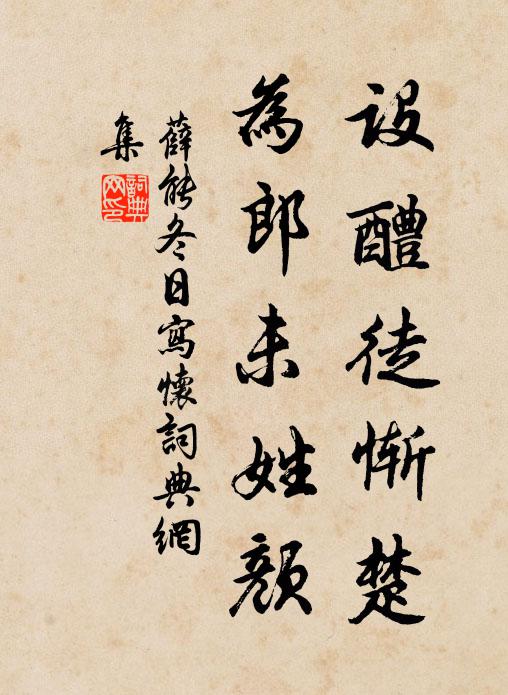 設醴徒慚楚
為郎未姓顏
薛能冬日寫懷詞典網
集
詞典網印